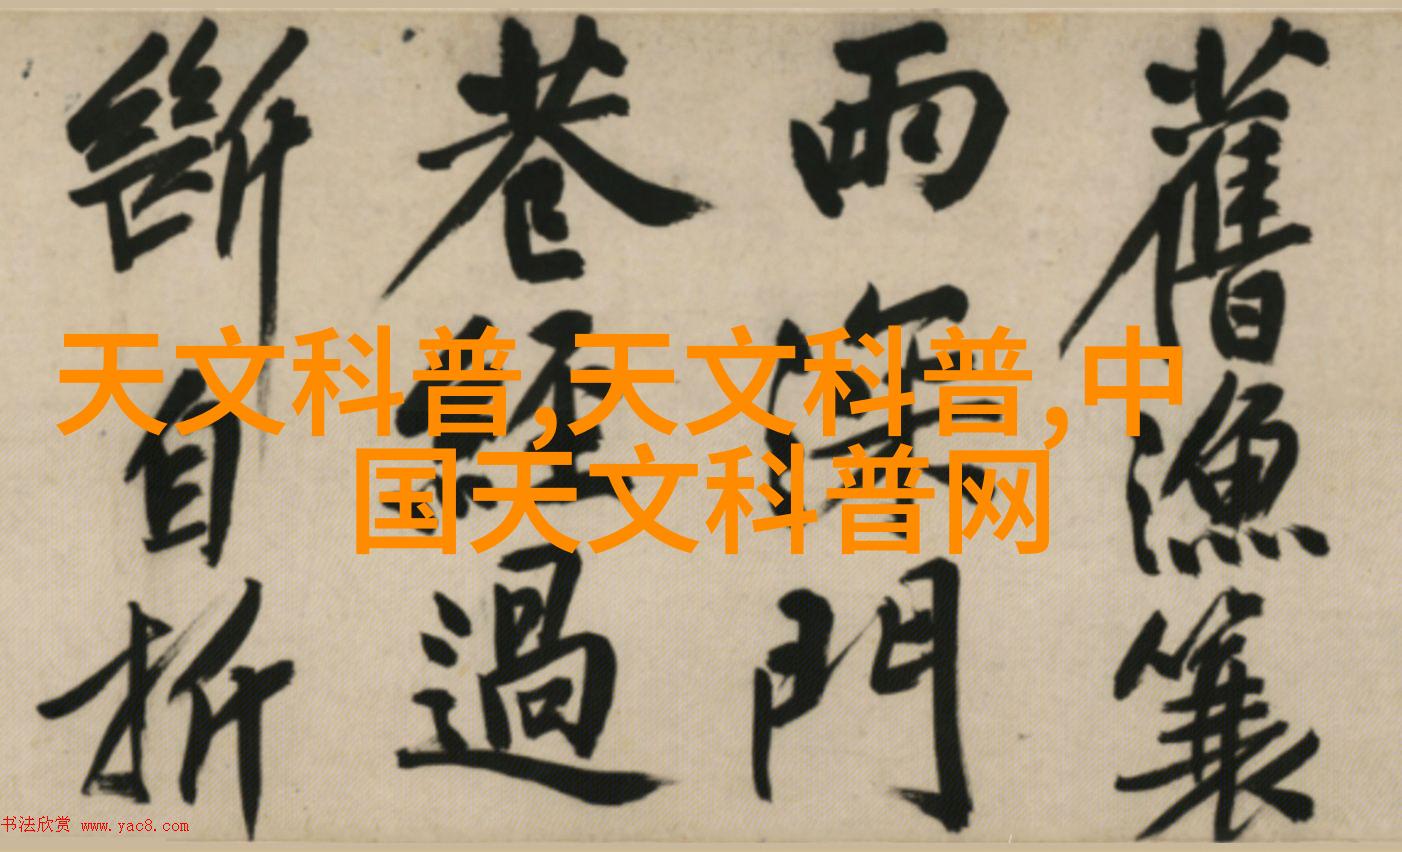 舊漁簑
雨深門
巷經過
斷自折
天文科普,天文科普,中
国天文科普网
书法欣赏 www.yac8.com